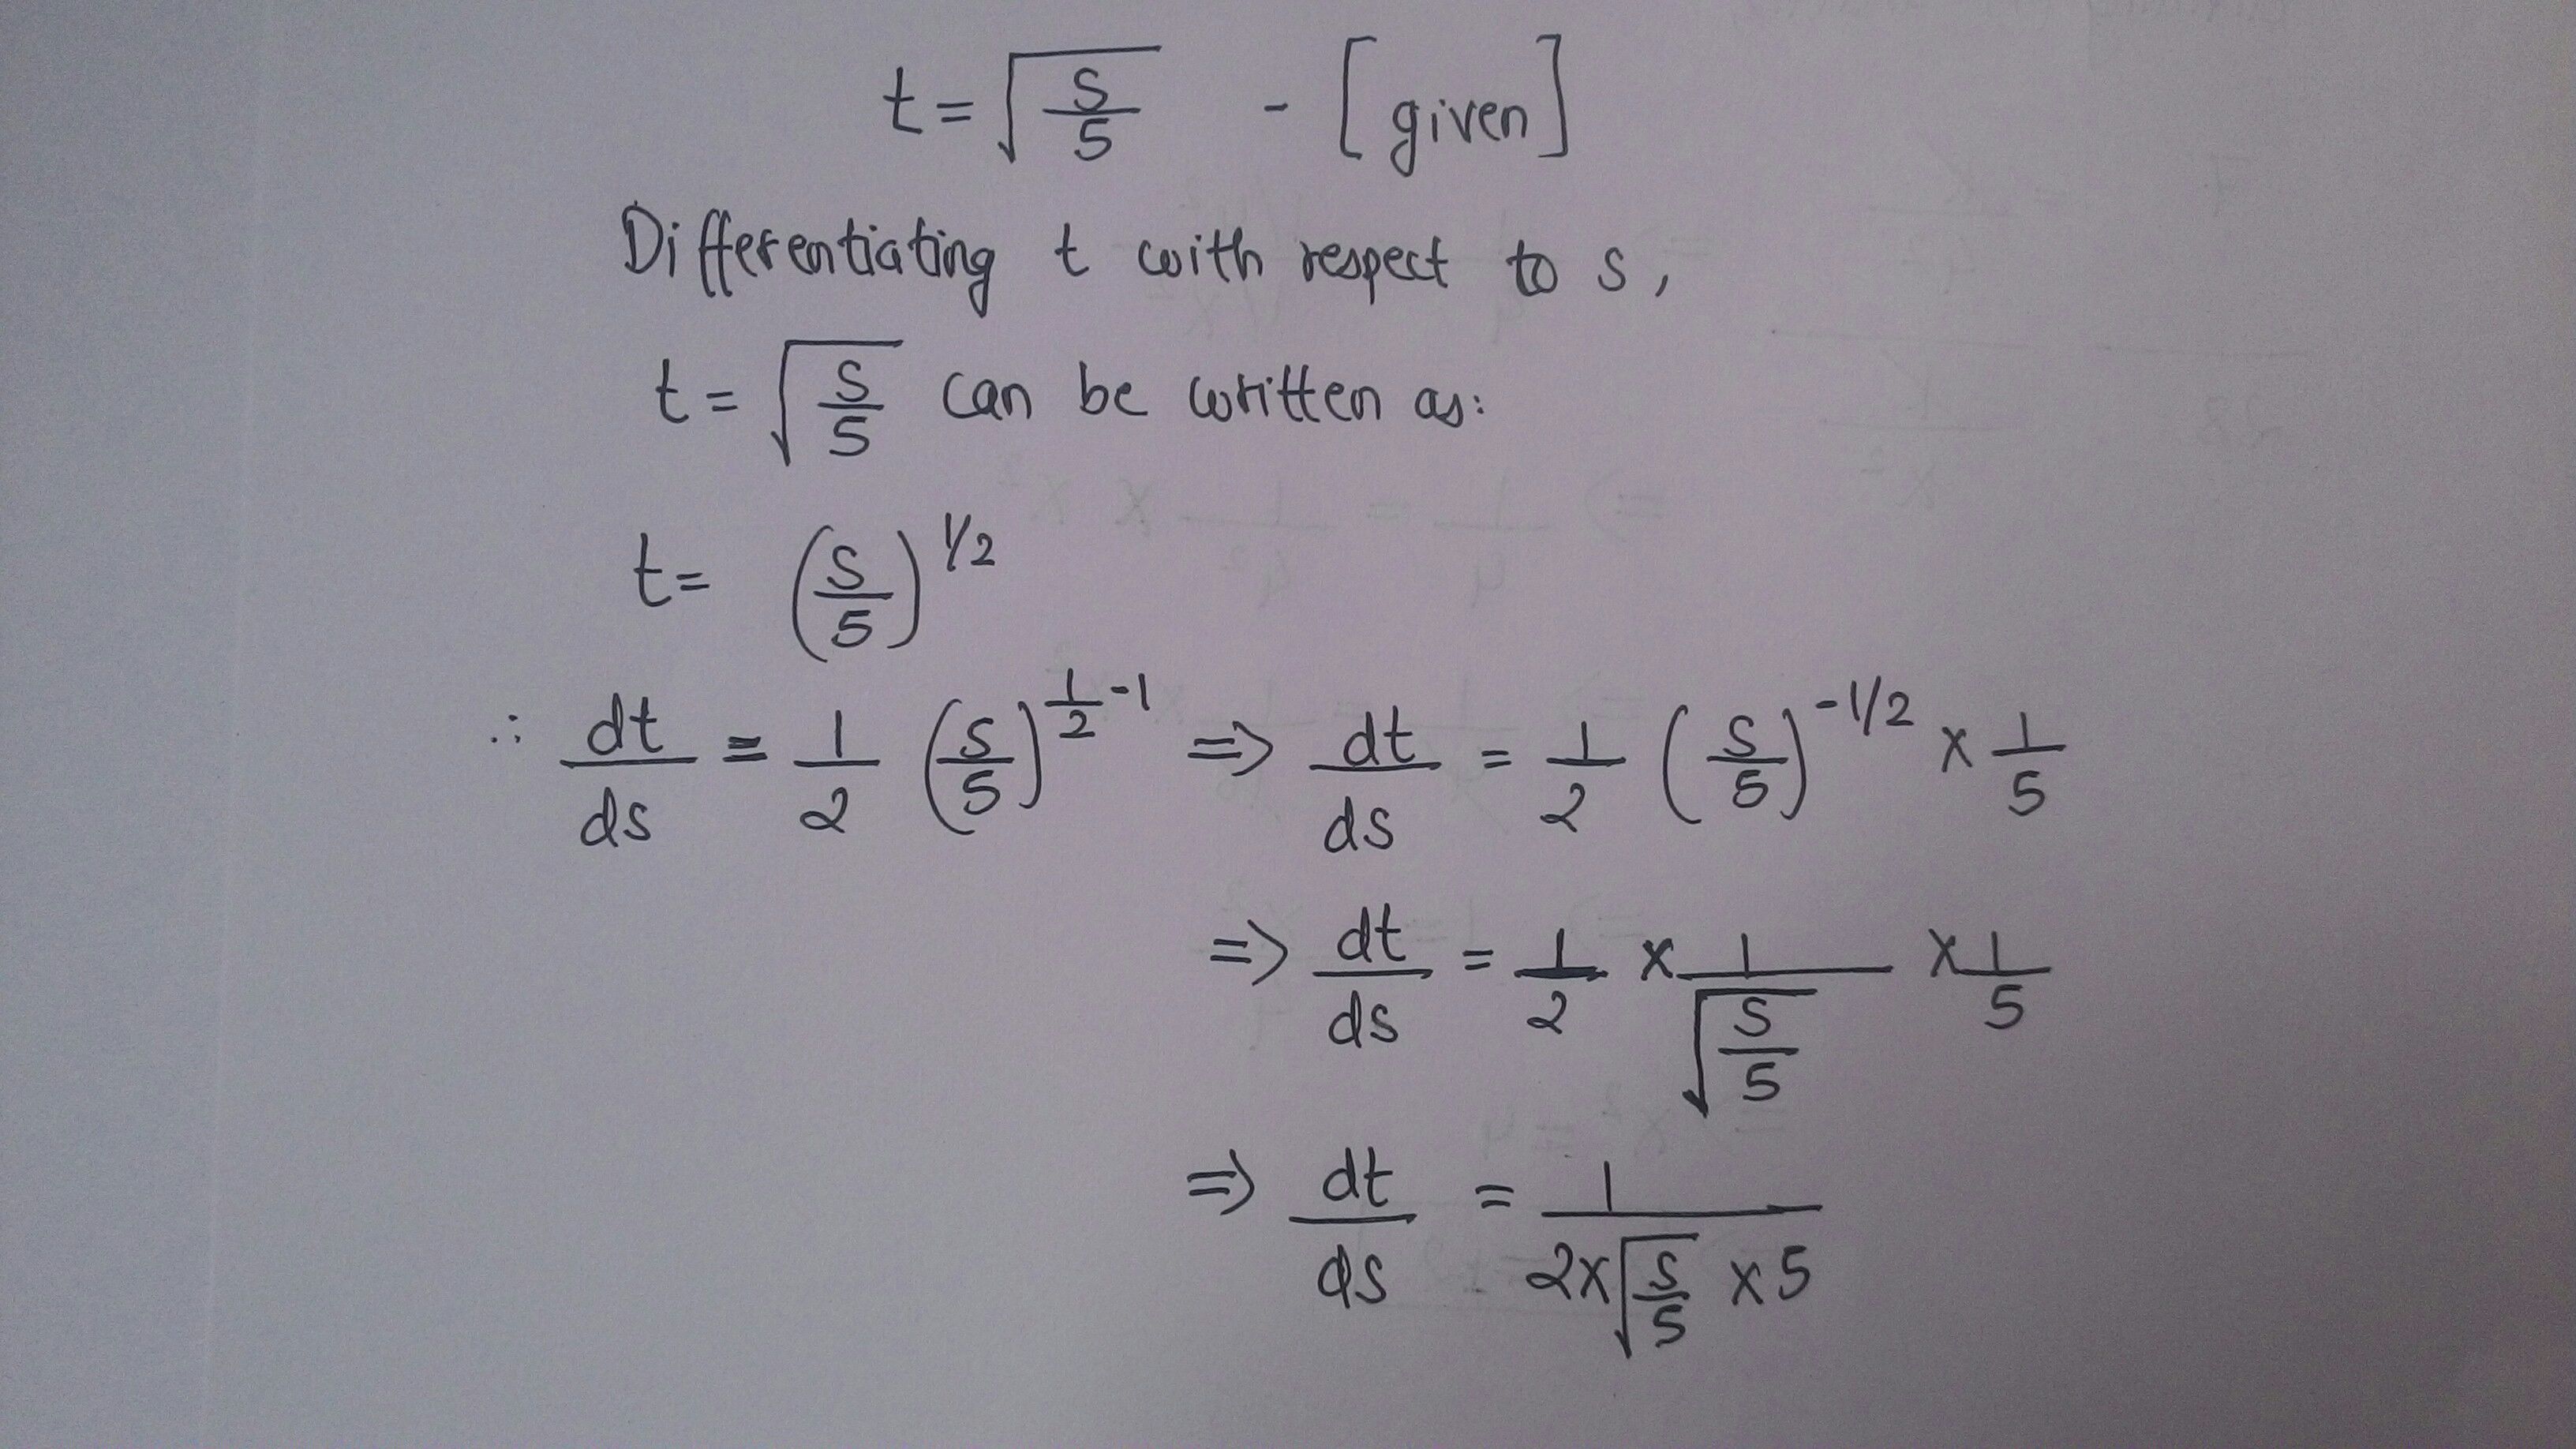 t = √(s/5) - [given]
Differentiating t with respect to s,
t = √(s/5) can be written as:
t = (s/5)^1/2
∴ dt/ds = 1/2 (s/5)^(1/2 - 1) => dt/ds = 1/2 (s/5)^-1/2 × 1/5
=> dt/ds = 1/2 × 1/√(s/5) × 1/5
=> dt/ds = 1/(2×√(s/5) × 5)